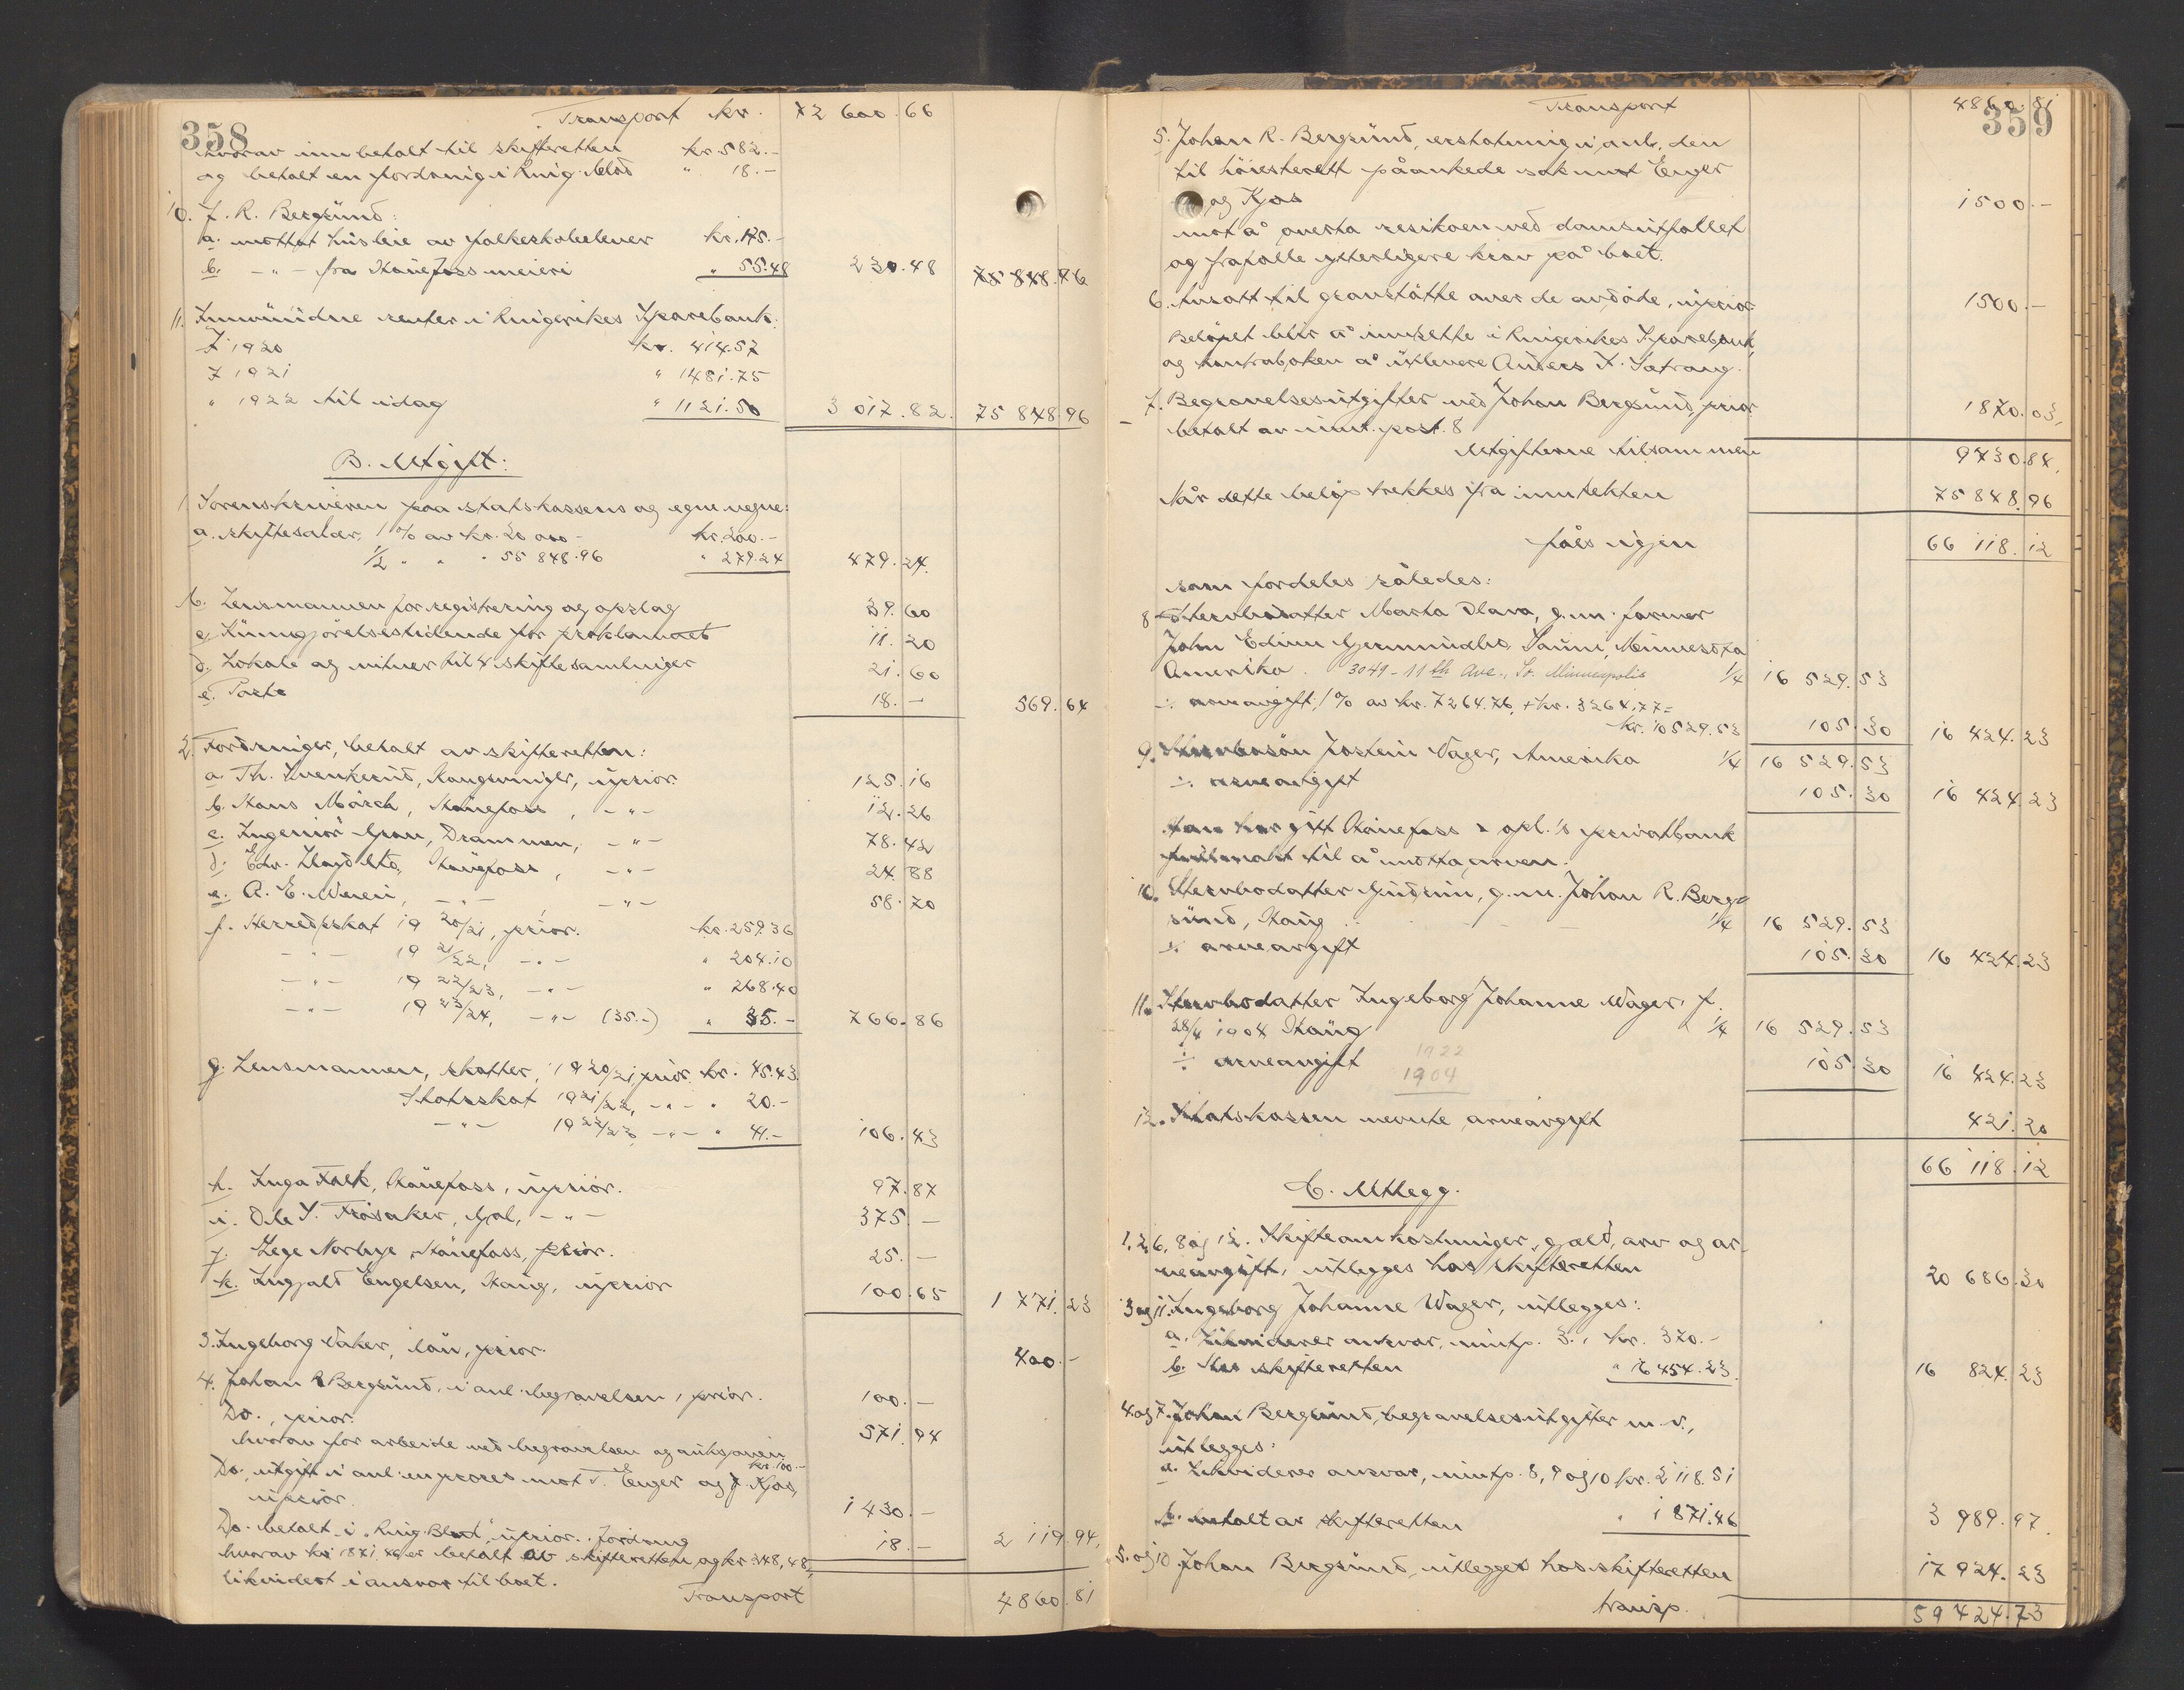 358
Transport kr. 72 600.66
hvorav innbetalt til skifteretten kr. 582.-
og betalt en fordring i Ring. Blad " 18.-
10. J. R. Bergsund:
a. mottat husleie av folkeskoleelever kr. 175.-
b. -"- fra Hønefoss meieri " 55.48 230.48 75 848.96
11. Innvundne renter i Ringerikes Sparebank:
I 1920 kr. 414.57
I 1921 " 1481.75
" 1922 til idag " 1121.50 3 017.82 75 848.96
B. Utgift:
1. Sorenskriveren paa statskassens og egne vegne:
a. skiftesalær, 1 % av kr. 20 000 - kr. 200.-
1/2 " " " 55 848.96 " 279.24 479.24
b. Lensmannen for registrering og opslag 39.60
c. Kunngjørelsestidende for proklamaet 11.20
d. Lokale og vitner til 4 skiftesamlinger 21.60
e. Porto 18.- 569.64
2. Fordringer, betalt av skifteretten:
a. Th. Svenkerud, Haugsrunigh, uprior. 125.16
b. Hans Mørch, Hønefoss, -"- 12.26
c. Ingeniør Gran, Drammen, -"- 78.42
d. Edv. Lloyd Ltd, Hønefoss, -"- 24.88
e. A. E. Meieri, -"- -"- 58.70
f. Herredsskat 19 20/21, prior. kr. 259.36
-"- 19 21/22, -"- " 204.10
-"- 19 22/23, -"- " 268.40
-"- 19 23/24, -"- (35.-) " 35.- 766.86
g. Lensmannen, skatter, 1920/21 prior. kr. 45.43
Statsskat 1921/22, -"- " 20.-
-"- 1922/23 -"- " 41.- 106.43
h. Inga Falk, Hønefoss, uprior. 97.87
i. Ole T. Frøsaker, Gol, -"- 375.-
j. Lege Norbye, Hønefoss, prior. 25.-
k. Ingjald Engelsen, Haug, uprior 100.65 1 771.23
3. Ingeborg Vaker, lån, prior. 400.-
4. Johan R Bergsund, i anl. begravelsen, prior. 100.-
Do., prior. 571.94
hvorav for arbeide ved begravelsen og auksjonen kr. 100.-
Do. utgift i anl. en proces mot T. Enger og J. Kjos,
uprior. 1 430.-
Do. betalt i "Ring. Blad", uprior. fordring 18.- 2 119.94
hvorav kr. 1871.46 er betalt av skifteretten og kr. 248,48
likvidert i ansvar til boet.
Transport 4860.81
359
Transport 4860.81
5. Johan R. Bergsund, erstatning i anl. den
til høiesterett påankede sak mot Enger
og Kjos 1500.-
mot å overta resikoen ved domsutfallet
og frafalle ytterligere krav på boet.
6. Avsatt til gravstøtte over de avdøde, uprior 1500.-
Beløpet blir å innsette i Ringerikes Sparebank,
og kontraboken å utlevere Anders T. Sætrang.
7. Begravelsesutgifter ved Johan Bergsund, prior.
betalt av innt. post. 8 1870.03
Utgifterne tilsammen 9730.84
Når dette beløp trekkes fra inntekten 75 848.96
fåes igjen 66 118.12
som fordeles således:
8. Stervbodatter Marta Olava, g.m. farmer
John Edinn Gjermundbo, Saum, Minnesota
Amerika. 3049 - 11th Ave., So. Minneapolis 1/4 16 529.53
÷ arveavgift, 1% av kr. 7264.76 + kr. 3264.77 =
kr. 10529.53 105.30 16 424.23
9. Stervbosøn Jostein Vager, Amerika 1/4 16 529.53
÷ arveavgift 105.30 16 424.23
Han har gitt Hønefoss & opl.'s privatbank
fullmakt til å motta arven.
10. Stervbodatter Gudrun, g.m. Johan R. Berg-
sund, Haug 1/4 16 529.53
÷ arveavgift 105.30 16 424.23
11. Stervbodatter Ingeborg Johanne Vager, f.
28/4 1904 Haug 1/4 16 529.53
÷ arveavgift 105.30 16 424.23
1922
1904
12. Statskassen nevnte arveavgift 421.20
66 118.12
C. Utlegg.
1, 2, 6, 8 og 12. Skifteomkostninger, gæld, arv og ar-
veavgift, utlegges hos skifteretten 20 686.30
3 og 11. Ingeborg Johanne Vager, utlegges:
a. likviderer ansvar, inntp. 3., kr. 370.-
b. Hos skifteretten " 16 454.23 16 824.23
4 og 7. Johan Bergsund, begravelsesutgifter m.v.,
utlegges:
a. Likviderer ansvar, inntp. 8, 9 og 10 kr. 2 118.51
b. betalt av skifteretten " 1 871.46 3 989.97
5. og 10 Johan Bergsund, utlegges hos skifteretten 17 924.23
transp. 59 424.73